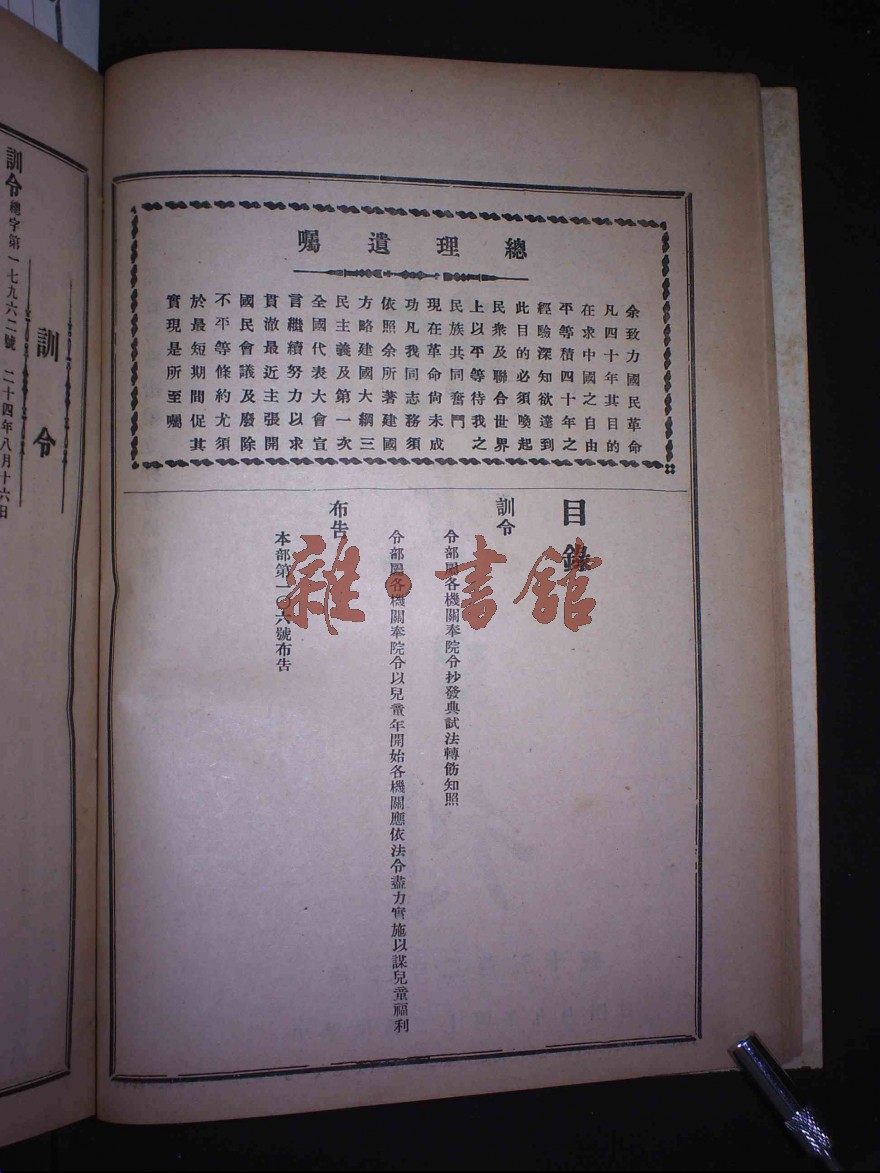 總理遺囑
余致力國民革命
凡四十年其目的
在求中國之自由
平等積四十年之
經驗深知欲達到
此目的必須喚起
民衆及聯合世界
上以平等待我之
民族共同奮鬥
現在革命尙未成
功凡我同志務須
依照余所著建國
方略建國大綱三
民主義及第一次
全國代表大會宣
言繼續努力以求
貫澈最近主張開
國民會議及廢除
不平等條約尤須
於最短期間促其
實現是所至囑
目錄
訓令
令部屬各機關奉院令抄發典試法轉飭知照
令部屬各機關奉院令以兒童年開始各機關應依法令盡力實施以謀兒童福利
布告
本部第一〇六號布告
訓令
訓令總字第一七九六二號 二十四年八月十六日
雜·書館